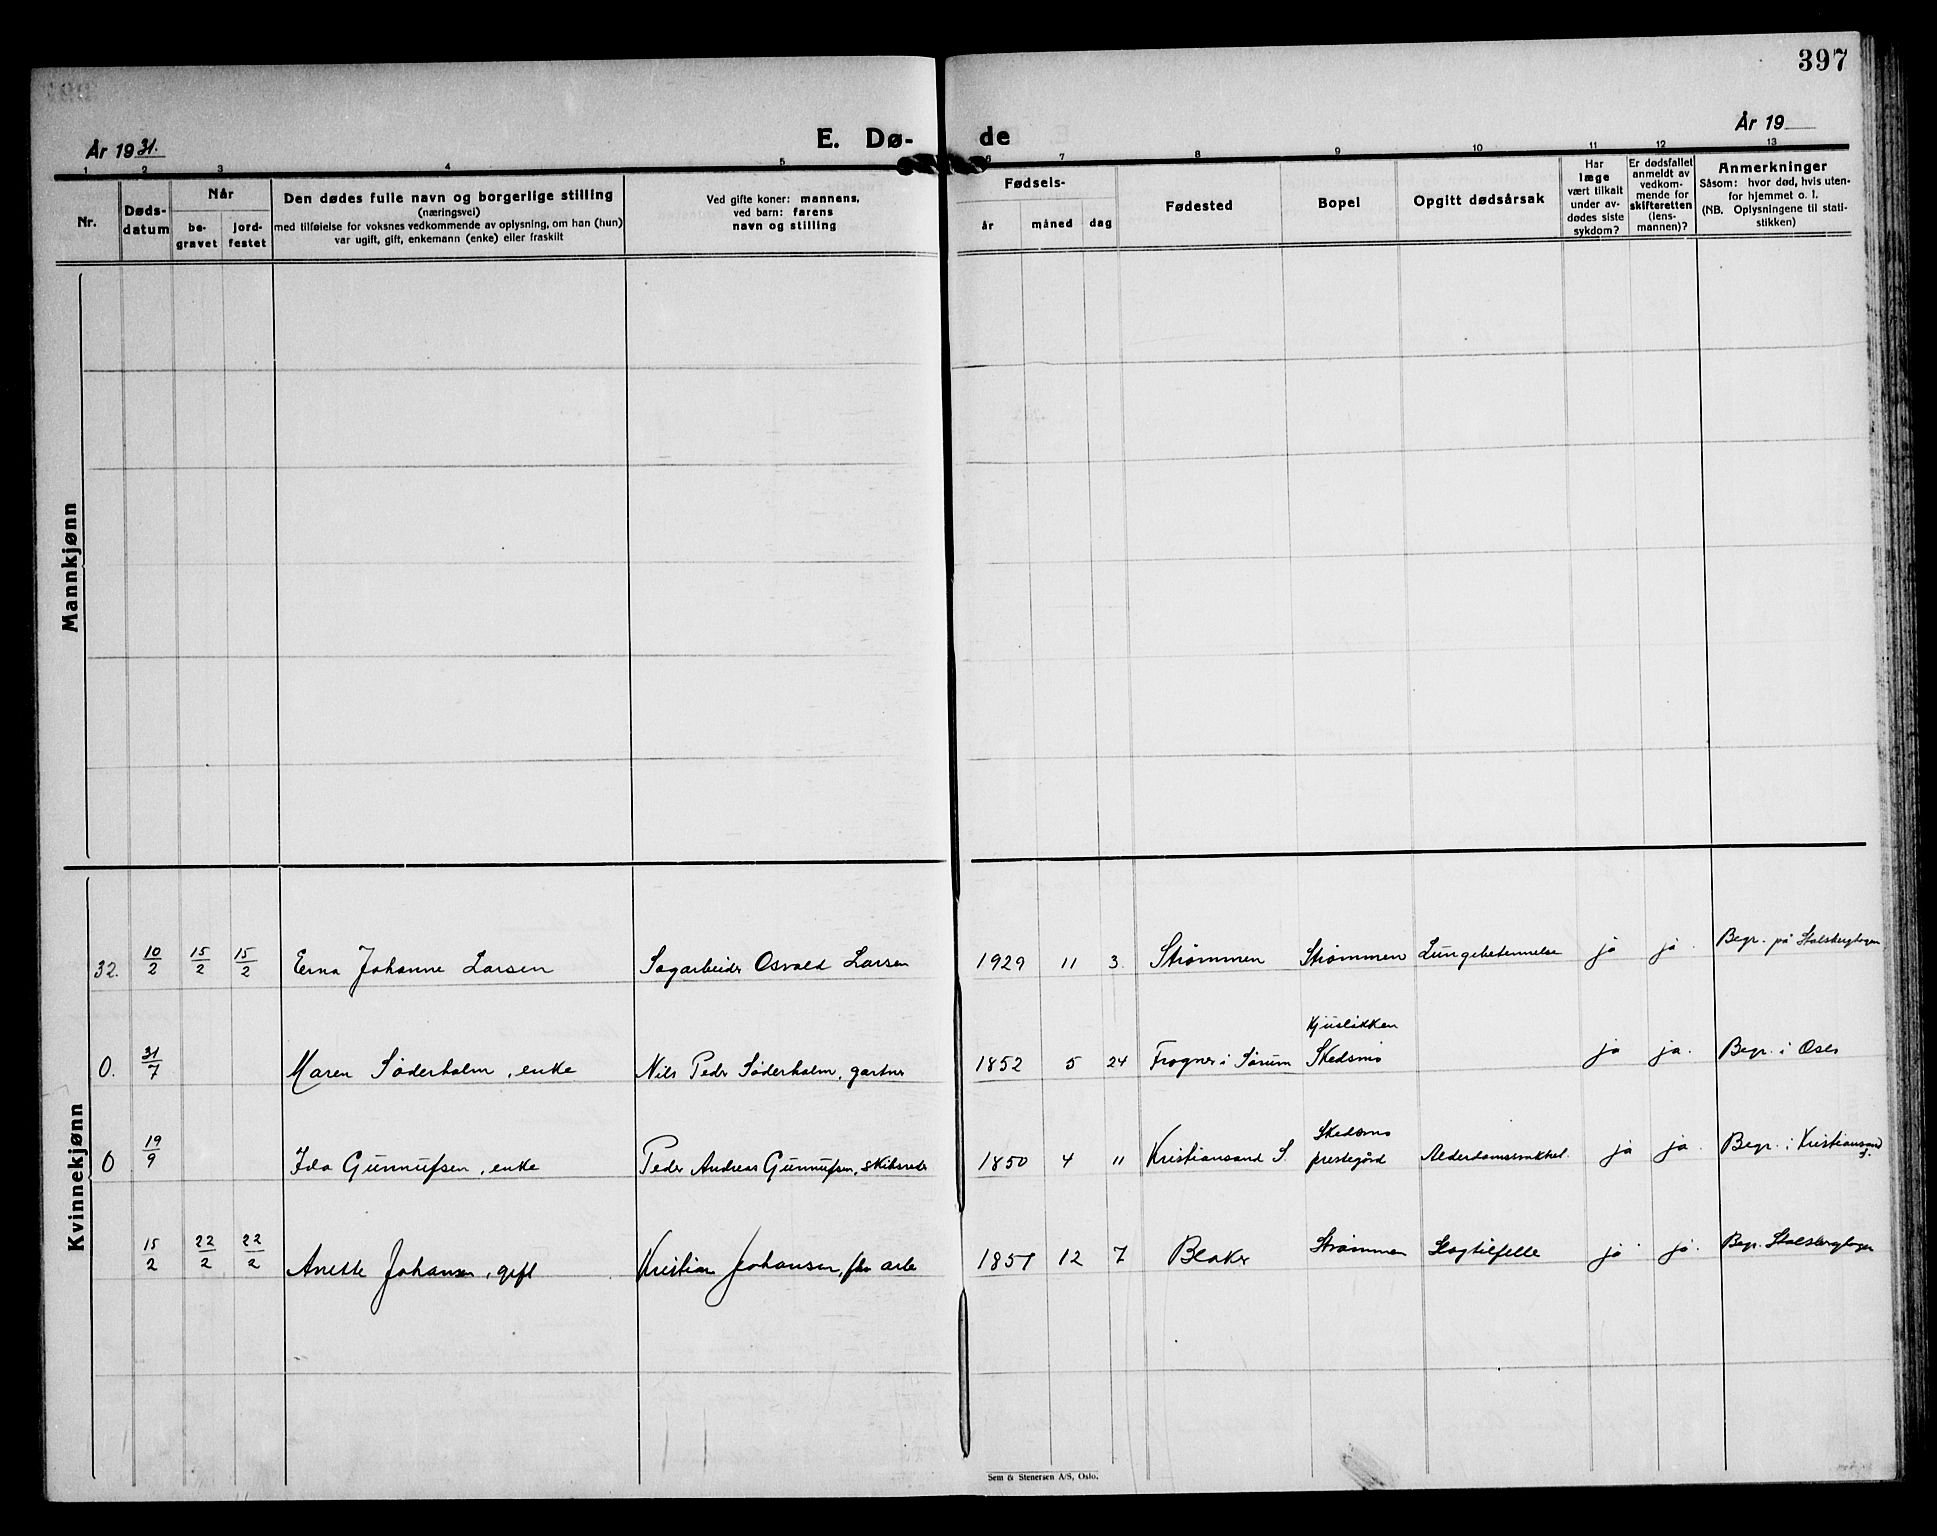 397
År 1931.
E. Dø-
de
År 19
1 2 3 4 5 6 7 8 9 10 11 12 13
Nr.
Døds-
datum
Når
be-
gravet
jord-
festet
Den dødes fulle navn og borgerlige stilling
(næringsvei)
med tilføielse for voksnes vedkommende av oplysning, om han (hun)
var ugift, gift, enkemann (enke) eller fraskilt
Ved gifte koner: mannens,
ved barn: farens
navn og stilling
Fødsels-
år
måned
dag
Fødested
Bopel
Opgitt dødsårsak
Har
læge
vært tilkalt
under av-
dødes siste
sykdom?
Er dødsfallet
anmeldt av
vedkom-
mende for
skifteretten
(lens-
mannen)?
Anmerkninger
Såsom: hvor død, hvis uten-
for hjemmet o. l.
(NB. Oplysningene til stati-
stikken)
Mannkjønn
Kvinnekjønn
32. 10/2 15/2 15/2 Erna Johanne Larsen Sagarbeider Osvald Larsen 1929 11 3 Strømmen Strømmen Lungebetennelse ja ja. Begr. på Stalsberghagen
Kjuslikken
0. 31/7 Maren Søderholm, enke Nils Peder Søderholm, gartner 1852 5 24 Frogner i Sørum Skedsmo ja ja. Begr. i Oslo
Skedsmo
0 19/9 Ida Gunnufsen, enke Peder Andreas Gunnufsen, skibsreder 1850 4 11 Kristiansand S. prestegård Alderdomssvakhet. ja ja. Begr. i Kristiansand
S.
15/2 22/2 22/2 Anette Johansen, gift Kristian Johansen, arb 1857 12 7 Blaker Strømmen Slagtilfelle ja ja. Begr. Stalsberghagen
Sem & Stenersen A/S, Oslo.